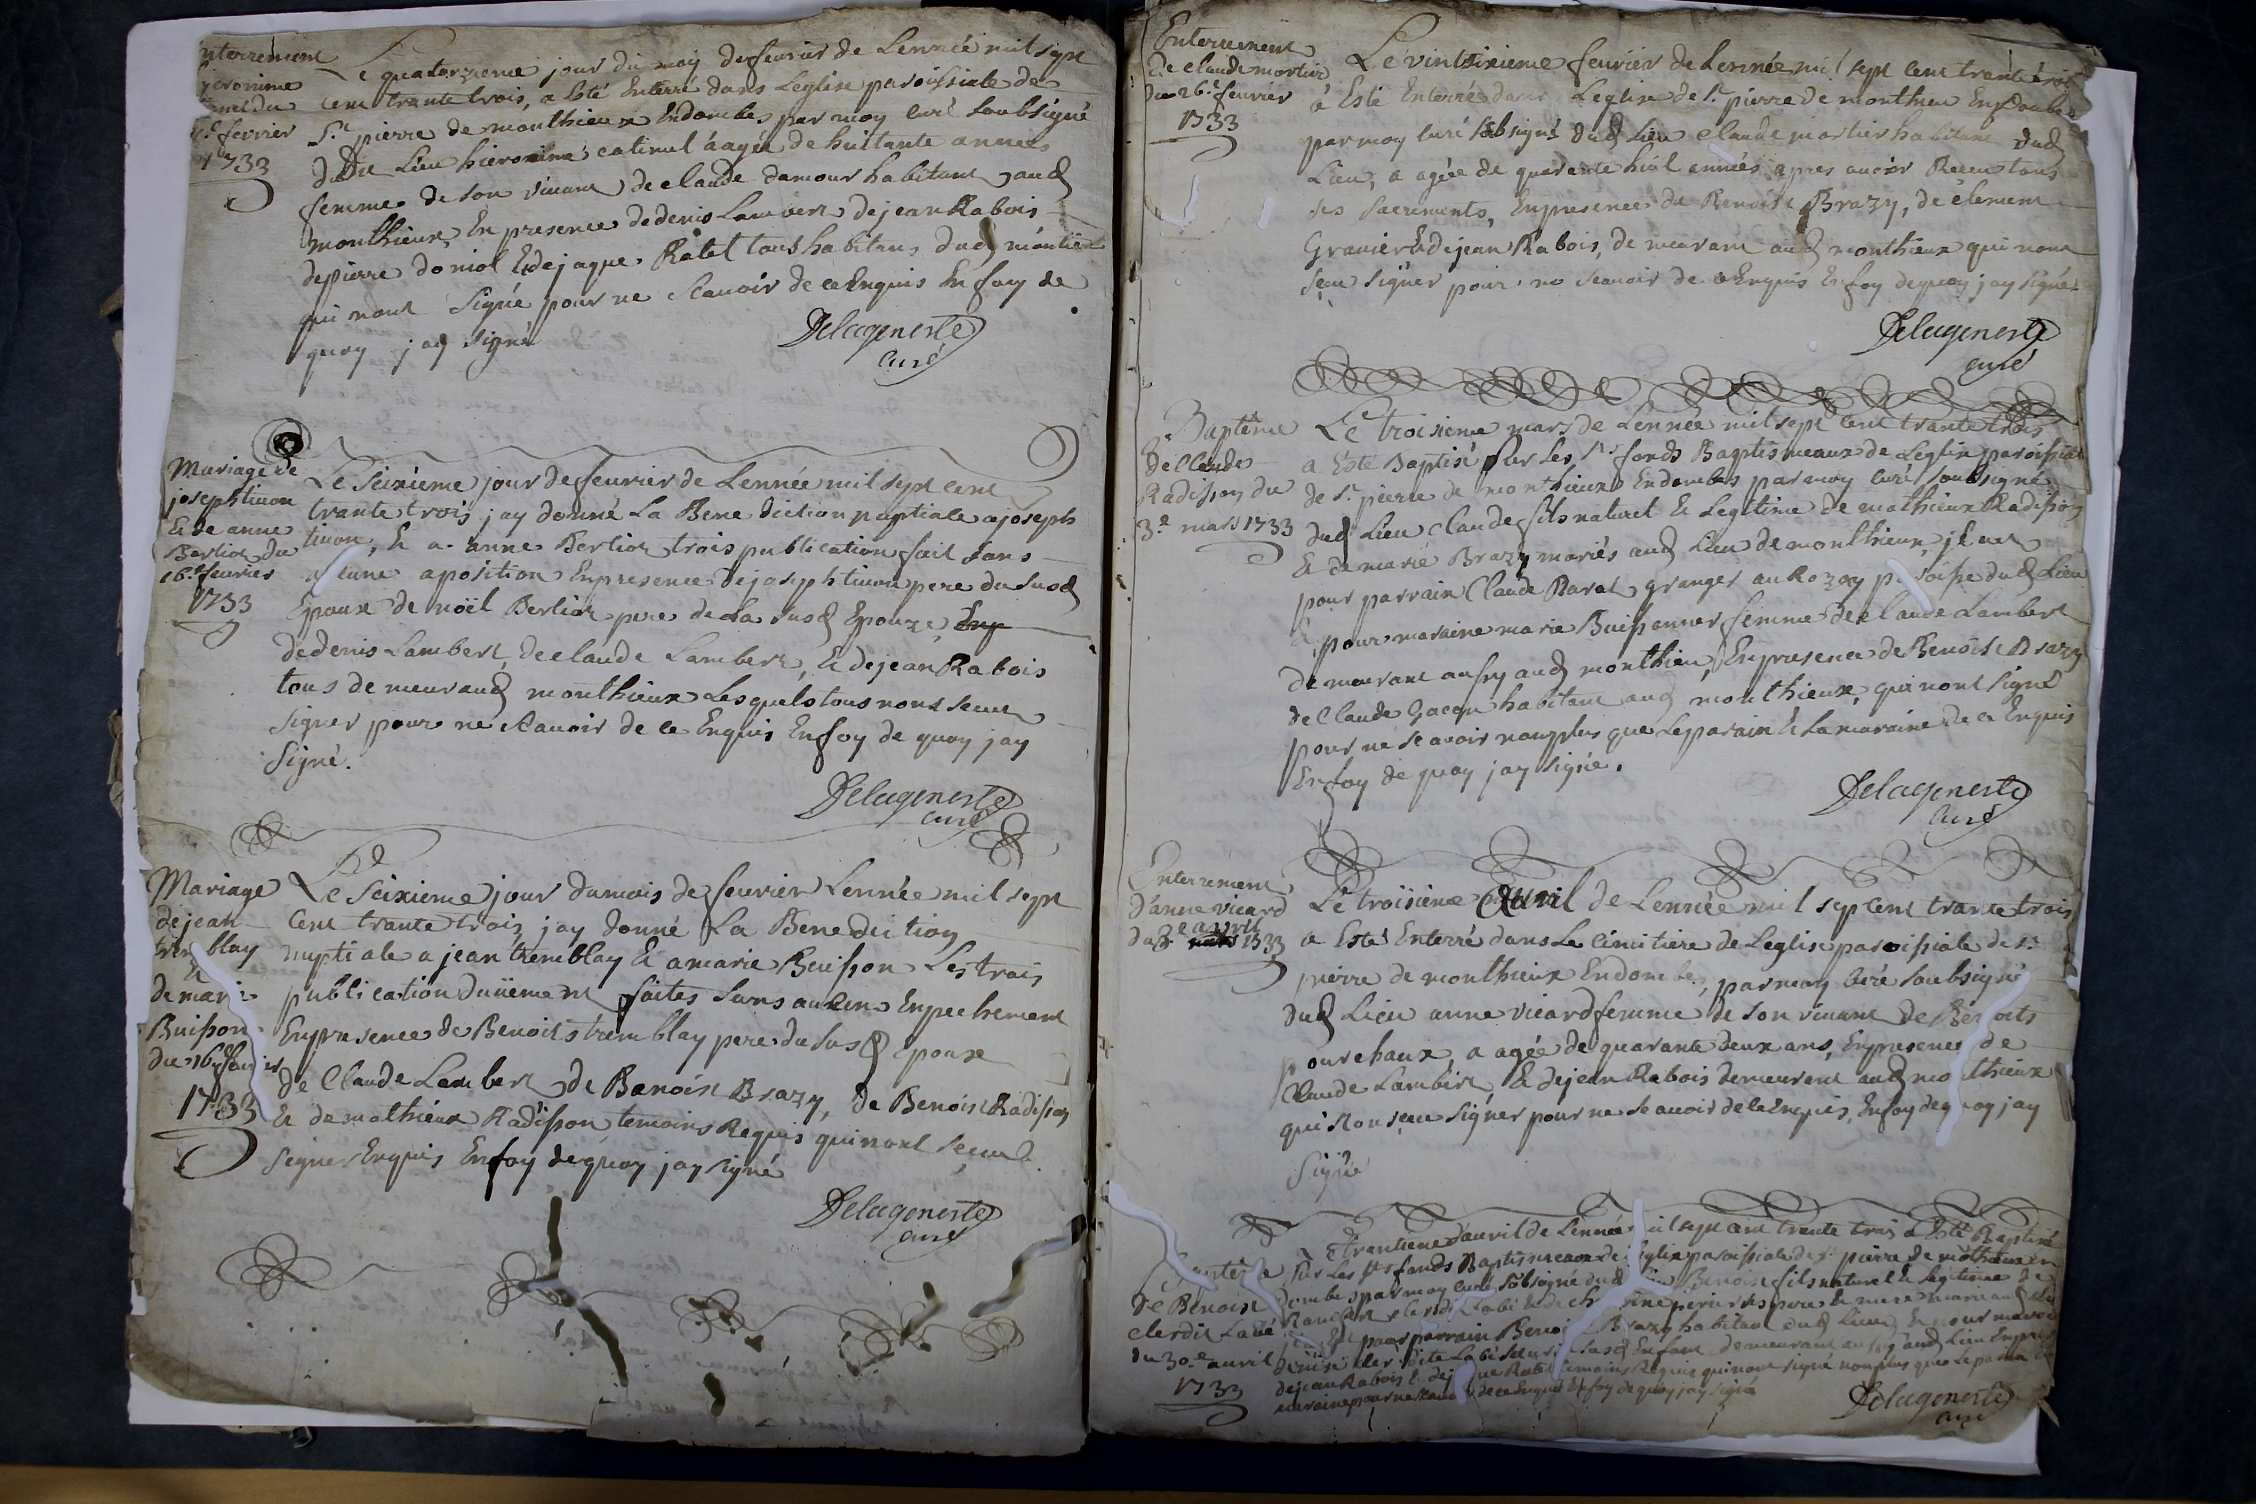 nterrement
jeronime
du
fevrier
1733
Le quatorzieme jour du moy de feurier de Lennéé mil sept
cent trante trois, a Esté Enterré dans Leglise paroissiale de
St. pierre de monthieux Endombes par moy curé soubsigné
dudit Lieu hieronime catimel áagéé de huittante années
femme de son viuant de claude damour habitant aud
monthieux, En presence de denis Lambert de jean Rabois
de pierre doniol & de jaque Ratel tous habitans dud montieux
qui nont signé pour ne scauoir de ce Enquis En foy de
quoy jay signé
Delageneste
curé
Mariage de
joseph tiuon
& de anne
Berlior du
16.e feurier
1733
Le seixiéme jour de feurier de Lennée mil sept cent
trante trois jay donné La Bene diction nuptiale a joseph
tiuon, & a anne Berlior trois publication fait sans
aucune aposition Enpresence de joseph tiuon pere du susd
Epoux de noël Berlior pere de La susd Epouze Enp
de denis Lambert, de claude Lambert, & de jean Rabois
tous de meurand monthieux Lesquels tous nont sceut
signer pour ne scauoir de ce Enquis En foy de quoy jay
signé.
Delageneste
curé
Mariage
de jean
tremblay
&
de marie
Buisson
du 16.e feurier
1733
Le seixieme jour du mois de feurier Lennée mil sept
cent trante trois jay donné La Bene diction
nuptiale a jean tremblay & a marie Buisson Les trois
publication duüement faites sans aucun Enpechement
Enpresence de Benoits tremblay pere du susd epoux
de Claude Lambert de Benoist Brazy, de Benoist Radisson
& de mathieux Radisson temoins Requis qui nont sceut
signer Enquis En foy de quoy jay signé
Delageneste
curé
Enterrement
de claude mortier
du 26.e feurier
1733
Le vintsixieme feurier de Lennée mil sept cent trante trois
a Esté Enterré dans Leglise de St. pierre de monthieu Endombes
par moy curé sobsigné dud Lieu claude mortier habitant dud
Lieu, a agée de quarente huit années apres auoir Receu tous
ses sacrements, Enpresence de Benoist Brazy, de clement
Gravier & de jean Rabois, de meurant aud monthieux qui nont
sceu signer pour ne scauoir de ce Enquis En foy dequoy jay signé
Delageneste
curé
Baptême
de Claude
Radisson du
3.e mars 1733
Le troisieme mars de Lennée mil sept cent trante trois
a Esté Baptisé sur Les Sts. fonds Baptismeaux de Leglise paroissial
de St. pierre de monthieux Endombes par moy curé soubsigné
dud Lieu claude fils naturel & Legitime de mathieux Radisson
& de marie Brazy mariés aud Lieu de monthieux, il eut
pour parrain Claude Rarat, granger au Rozay paroisse dud Lieu
& pour maraine marie Buissonner femme de claude Lambert
demeurant aufry aud monthieu, Enpresence de Benoist Brazy
de Claude Gacon habitant aud monthieux, qui nont signé
pour ne scavoir nonplus que Leparain & La maraine de ce Enquis
En foy de quoy jay signé.
Delageneste
Curé
Enterrement
D'anne vicard
du 3.e avril
mars 1733
Le troisiéme Auril de Lennée mil sept cent trante trois
a Esté Enterré dans Le cimitiere de Leglise paroissiale de St.
pierre de monthieux Endombe, par moy curé soubsigné
dud Lieu anne vicard femme de son viuant de Benoits
pourchaux, a agée de quarante deux ans, Enpresence de
Claude Lambert, & de jean Rabois demeurent aud monthieux
qui Nont sceu signer pour ne scauoir de ce Enquis, En foy de quoy jay
Signé
Baptême
de Benoist
clerdit Labé
du 30.e auril
1733
Le trentiene d'auril de Lennée mil sept cent trente trois a Esté Baptisé
sur Les Sts fonds Baptismeaux de Leglise paroissiale de St pierre de monthieux en
dombes par moy curé sobsigné dud Lieu Benoist fils naturel & Legitime de
pour parrain Benoist Brazy habitant dud Lieu, & pour
Denise clerdite Labé
de jean Rabois & de jaque Ratel temoins Requis qui nont signé nonplus que Le parain
maraine pour ne scauoir de ce Enquis En foy de quoy jay signé
Delageneste
curé